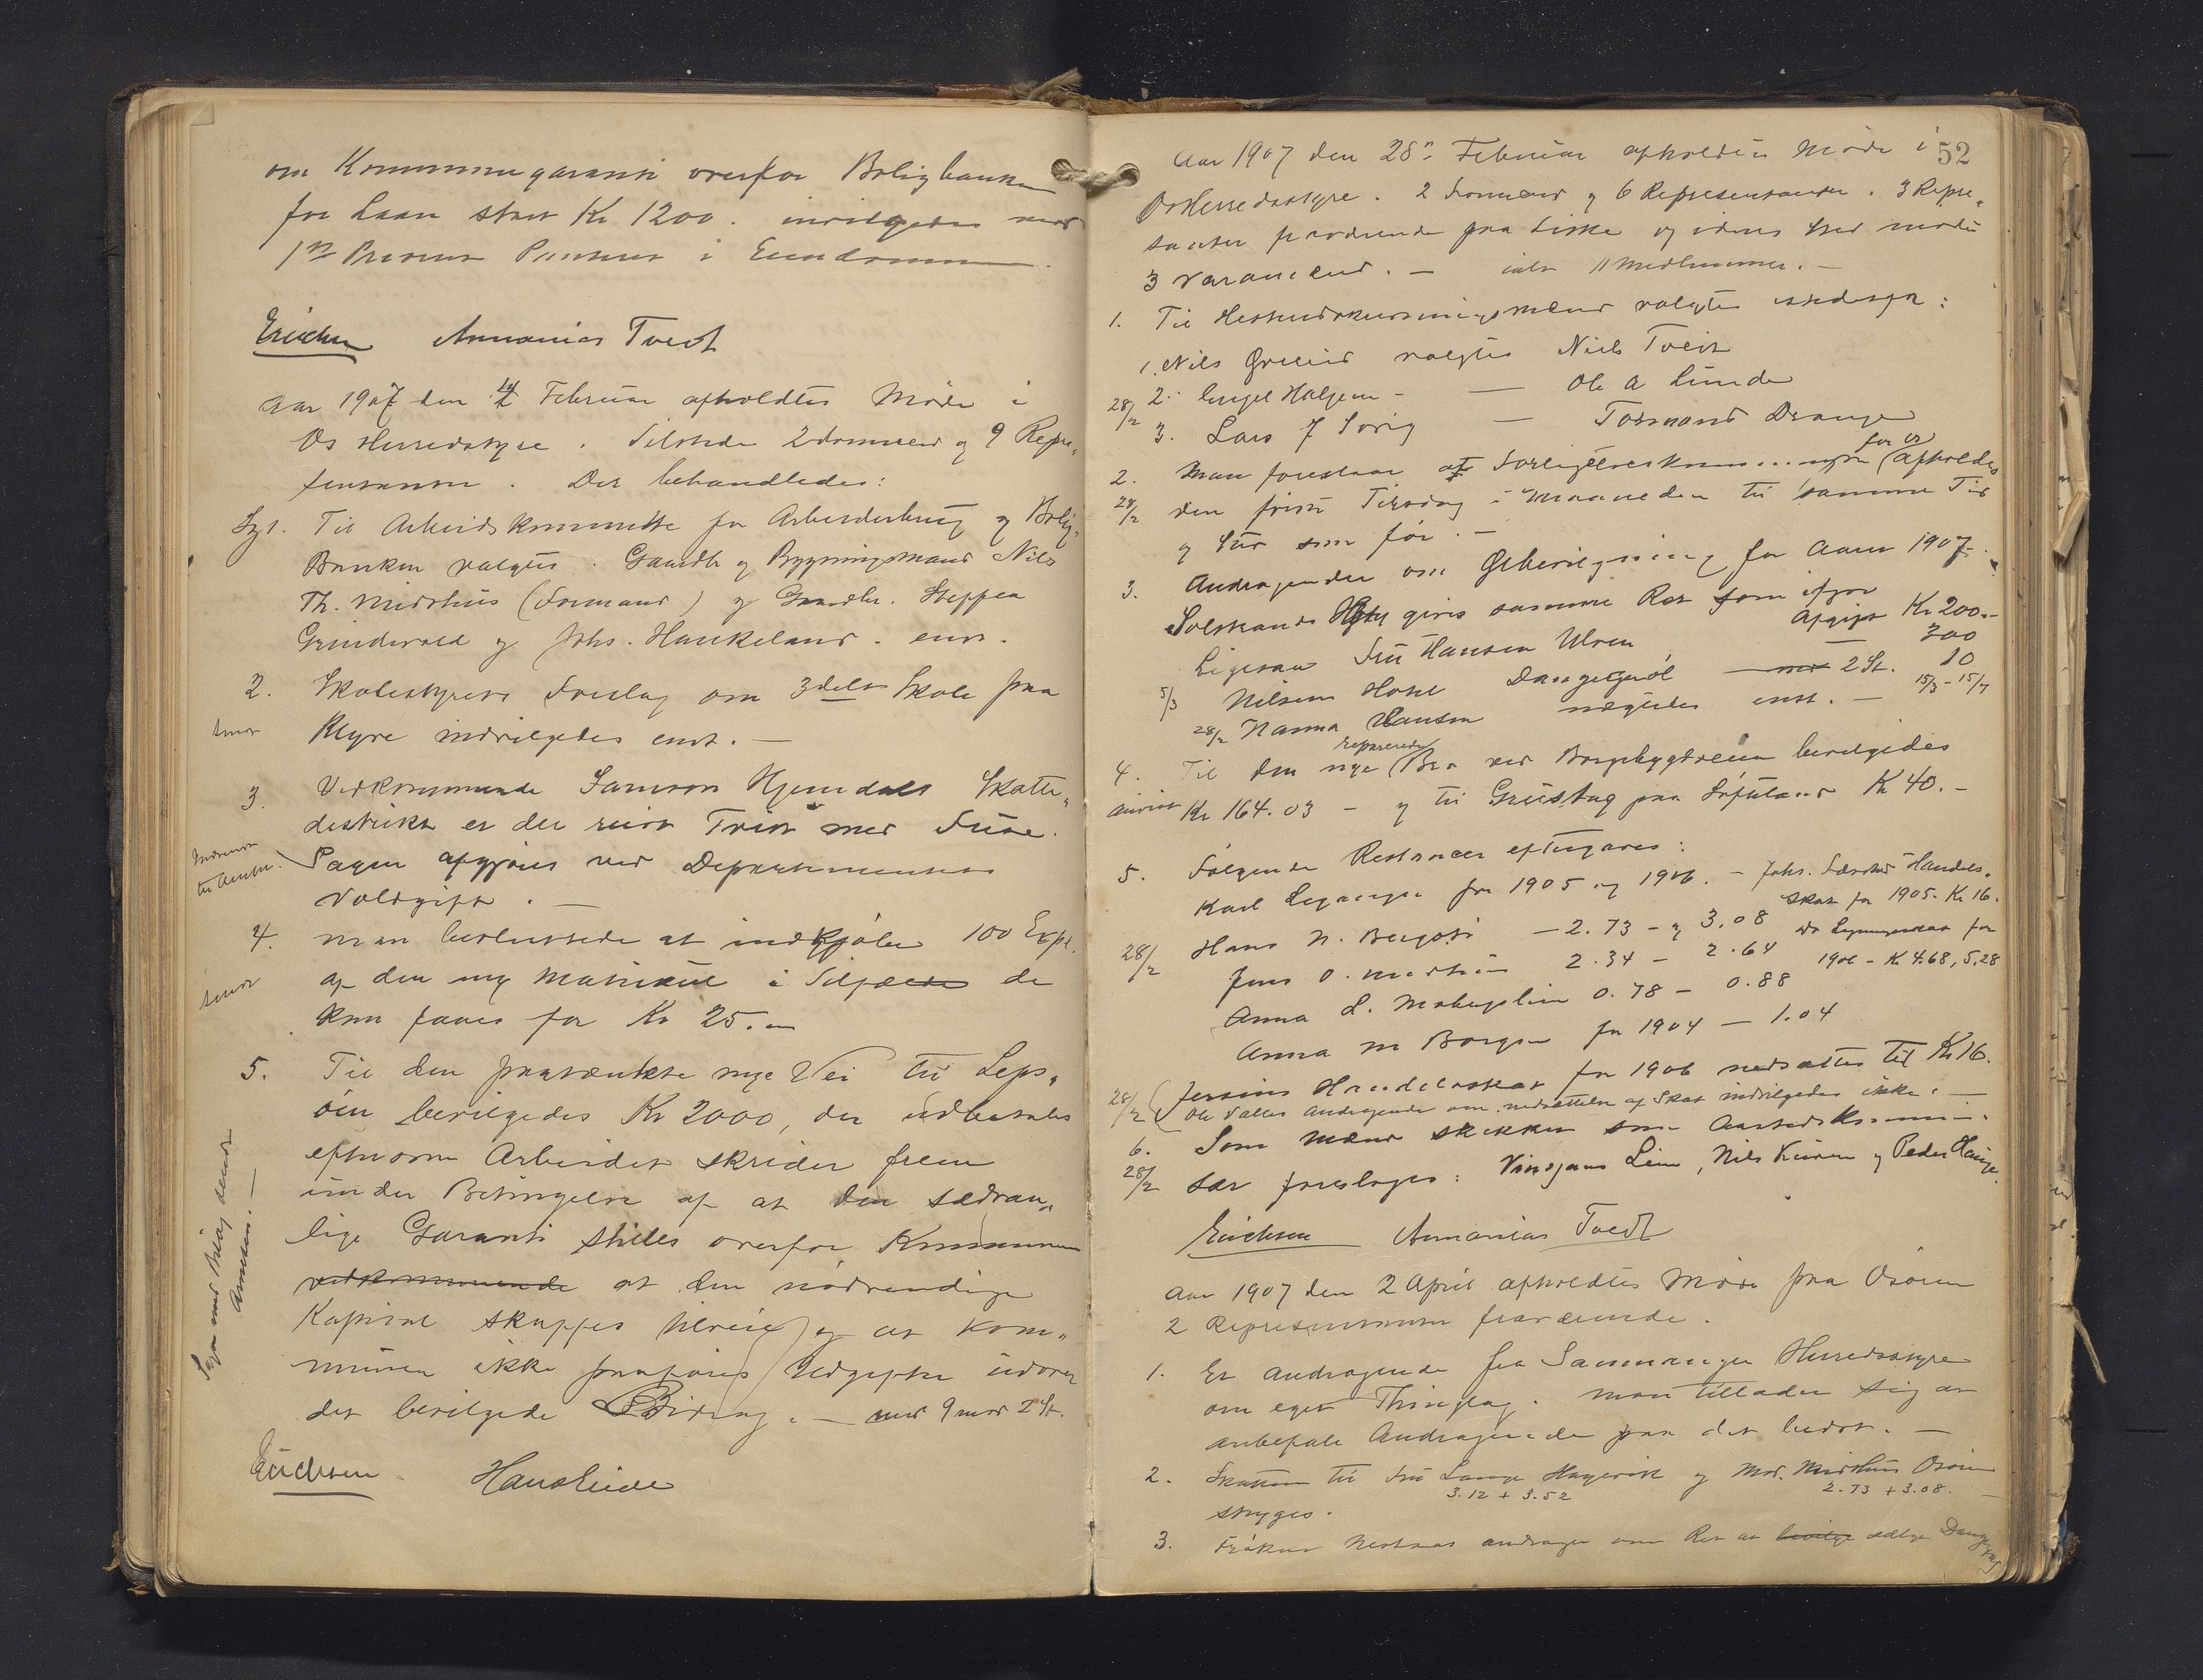 om Kommunegaranti overfor Boligbanken
for Laan stort Kr 1200. indvilgedes mod
1ste Prioritets Panteret i Eiendommen.
Erichsen Annanias Tveit
Aar 1907 den Februar afholdtes Møde i
Os Herredsstyre. Tilstede 2 Formænd og 9 Repre„
sentanter. Der behandledes:
Sag 1. Til Arbeidskommitte for Arbeiderbrug og Bolig„
Banken valgtes. Gaardbr og Bygningsmand Nils
Th. Midthus (Formand) og Gaardbr. Steffen
Grindevold og Johs. Haukeland. enst.
2. Skolestyrets Forslag om 3delt Skole paa
Klyve indvilgedes enst. —
3. Vedkommende Samson Hjemdals Skatte„
distrikt er der reist Tvist med Fuse.
Sagen afgjøres ved Departementets
Voldgift. —
4. man besluttede at indkjøbe 100 Expl.
af den ny Matrikul i Tilfælde de
kan faaes for Kr 25.—
5. Til den paatænkte nye Vei til Leps„
øen bevilgedes Kr 2000, der udbetales
eftersom Arbeidet skrider frem
under Betingelse af at den sædvan„
lige Garanti stilles overfor Kommunen
vedkommende at den nødvendige
Kapital skaffes tilveie og at Kom„
munen ikke paaføres Udgifter udover
det bevilgede Bidrag. — med 9 mod 2 St.
Erichsen. Hans Lunde
52
Aar 1907 den 28de Februar afholdtes Møde i
Os Herredsstyre. 2 Formænd og 6 Representanter. 3 Repre„
santer fraværende paa Liste og i deres Sted mødte
3 Varamænd. — ialt 11 Medlemmer. —
1. Til Hesteudskrivningsmænd valgtes istedenfor:
1. Nils valgtes Nils Tveit
28/2 2. Engel Haljem - — Ole A Lunde
3. Lars J Søvig — Tormand Drange
2. Man foreslaar at Forligelseskommissionen for Os afholdes
28/2 den første Tirsdag i Maaneden til samme Tid
og Sted som før. —
3. Andragender om Ølbevilgning for Aaret 1907.
Solstrands Hotel gives samme Ret som ifjor Afgift Kr 200.-
Ligesaa Fru Hansen Ulven — 300
5/3 Nilsens Hotel Dansgetøl — mod 2 St. 10
28/2 Hanna Hansen nægtedes enst. — 15/3 - 15/9
4. Til den nye reparerede Bro ved Borgebygdveien bevilgedes
anvist Kr 164.03 — og til Grustag paa Kr 40.-
5. Følgende Restancer eftergaves:
Karl for 1905 og 1906. — Johs. Handels„
skat for 1905. Kr 16.
28/2 Hans N. Bergstø — 2.73 - og 3.08 do Ligningsskat for
Jens O. Midthus 2.34 - 2.64 1906 - Kr 4.68, 5.28
Anna L. 0.78 - 0.88
Anna M Borgen for 1904 — 1.04
28/2 Jersins Handelsskat for 1906 nedsattes til Kr 16.
Ole Valles Andragende om nedsættelse af Skat indvilgedes ikke. —
6. Som Mænd skikket som Aastedskommi„
28/2 sær foreslages: Vinsjans Lien, Nils Kuven og Peder Hauge.
Erichsen Annanias Tveit
Aar 1907 den 2 April afholdtes Møde paa Osøren
2 Representanter fraværende.
1. Et andragende fra Samnanger Herredsstyre
om eget Thinglag. Man tillader sig at
anbefale Andragende paa det bedste. —
2. Skatten til Fru Lange Hagevik og Mad. Midthus Osøren
3.12 + 3.52 2.73 + 3.08.
stryges.
3. Frøken Nestaas andrager om Ret at bevilge sælge